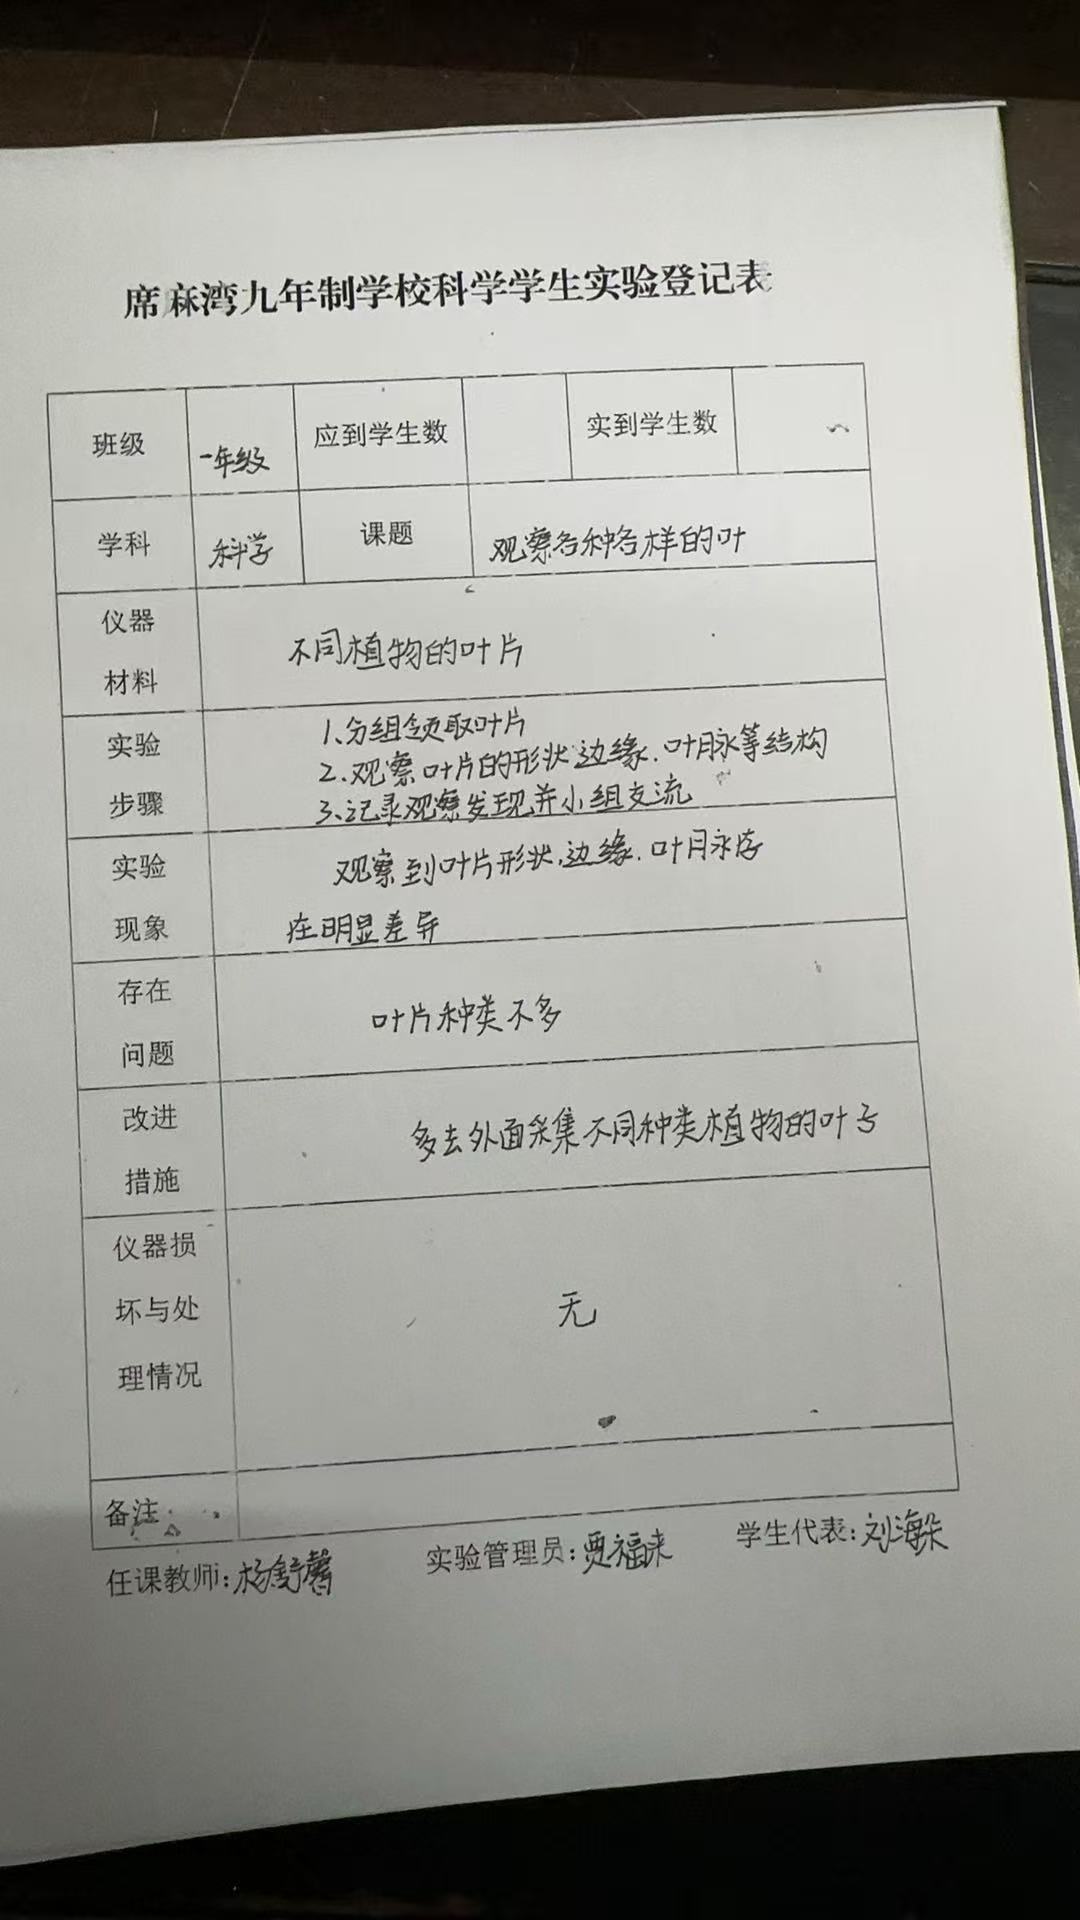 席麻湾九年制学校科学学生实验登记表
班级 一年级 应到学生数 实到学生数
学科 科学 课题 观察各种各样的叶
仪器
材料
不同植物的叶片
实验
步骤
1、分组领取叶片
2、观察叶片的形状、边缘、叶脉等结构
3、记录观察发现并小组交流
实验
现象
观察到叶片形状、边缘、叶脉存
在明显差异
存在
问题
叶片种类不多
改进
措施
多去外面采集不同种类植物的叶子
仪器损
坏与处
理情况
无
备注
任课教师：杨舒馨 实验管理员：贾福来 学生代表：刘海朵